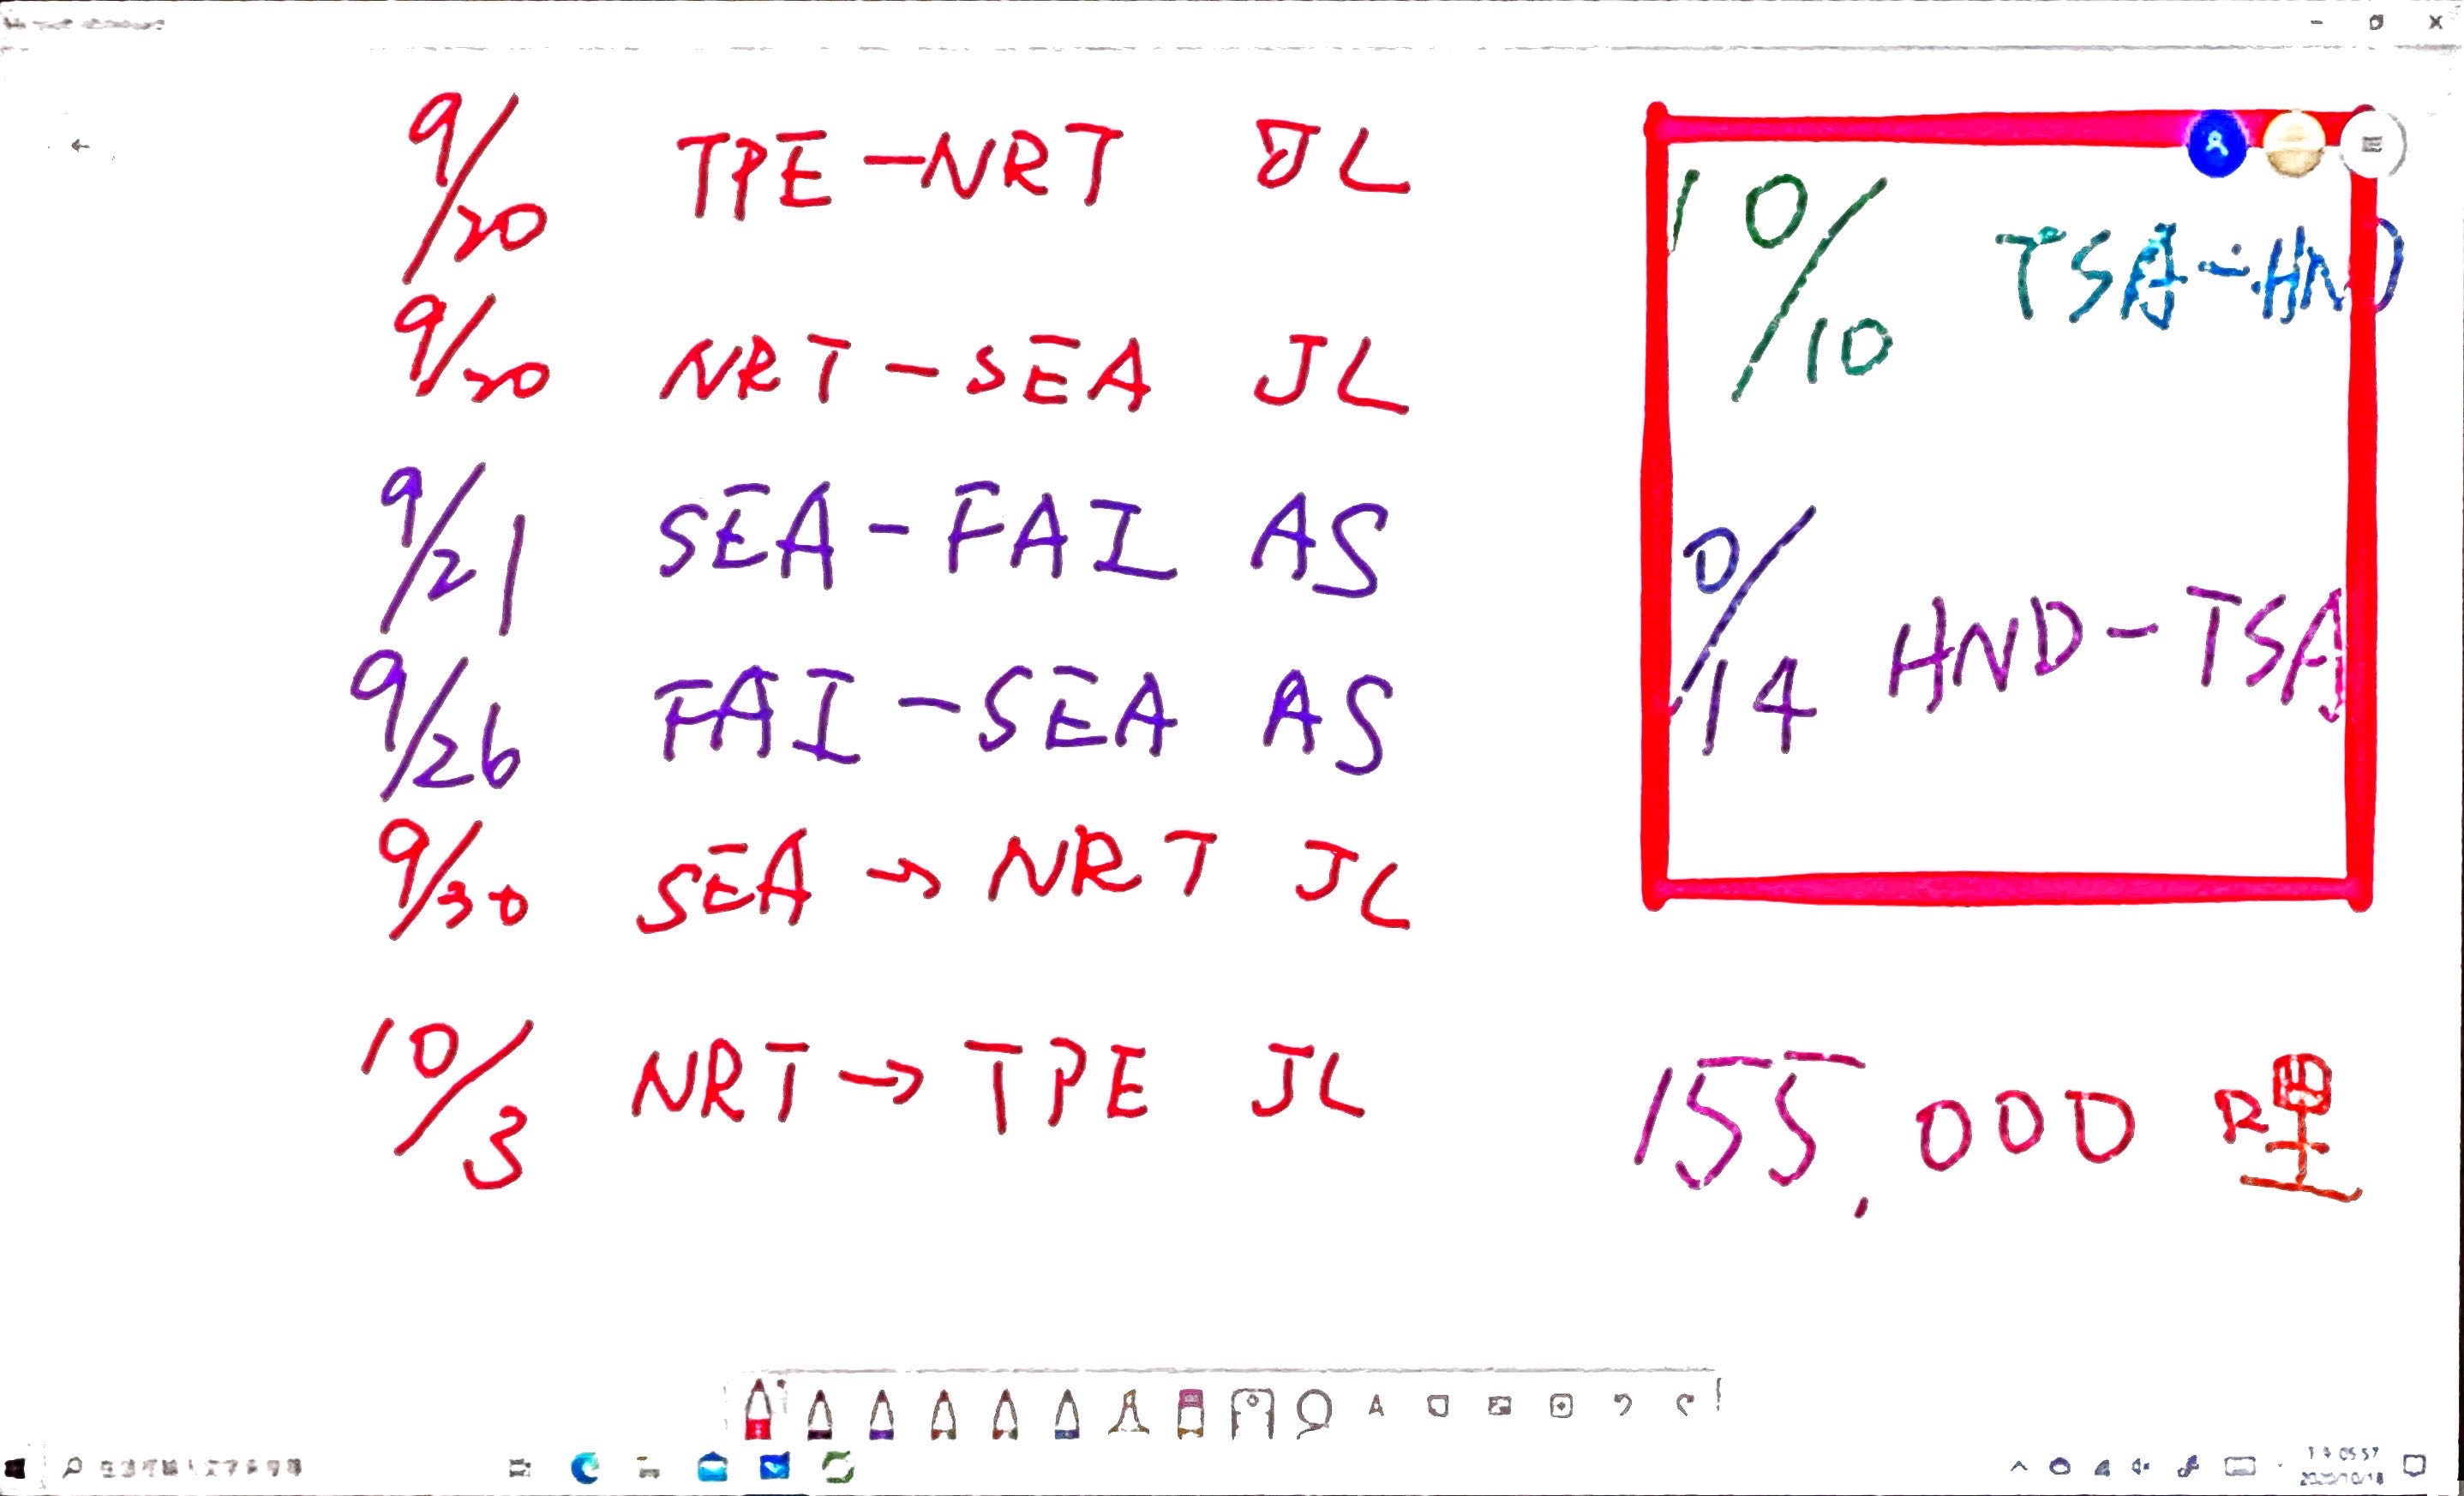 9/20 TPE-NRT JL
9/20 NRT-SEA JL
9/21 SEA-FAI AS
9/26 FAI-SEA AS
9/30 SEA→NRT JL
10/3 NRT→TPE JL
10/10 TSA-HND
10/14 HND-TSA
155,000 哩
05:57